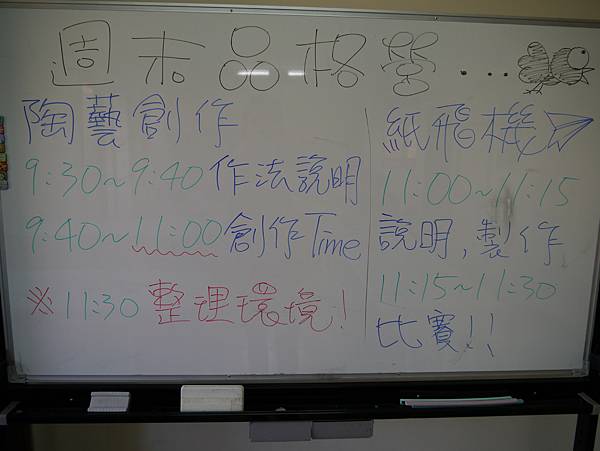 週末品格營...
陶藝創作
9:30~9:40 作法說明
9:40~11:00 創作Time
※11:30 整理環境!
紙飛機
11:00~11:15
說明,製作
11:15~11:30
比賽!!